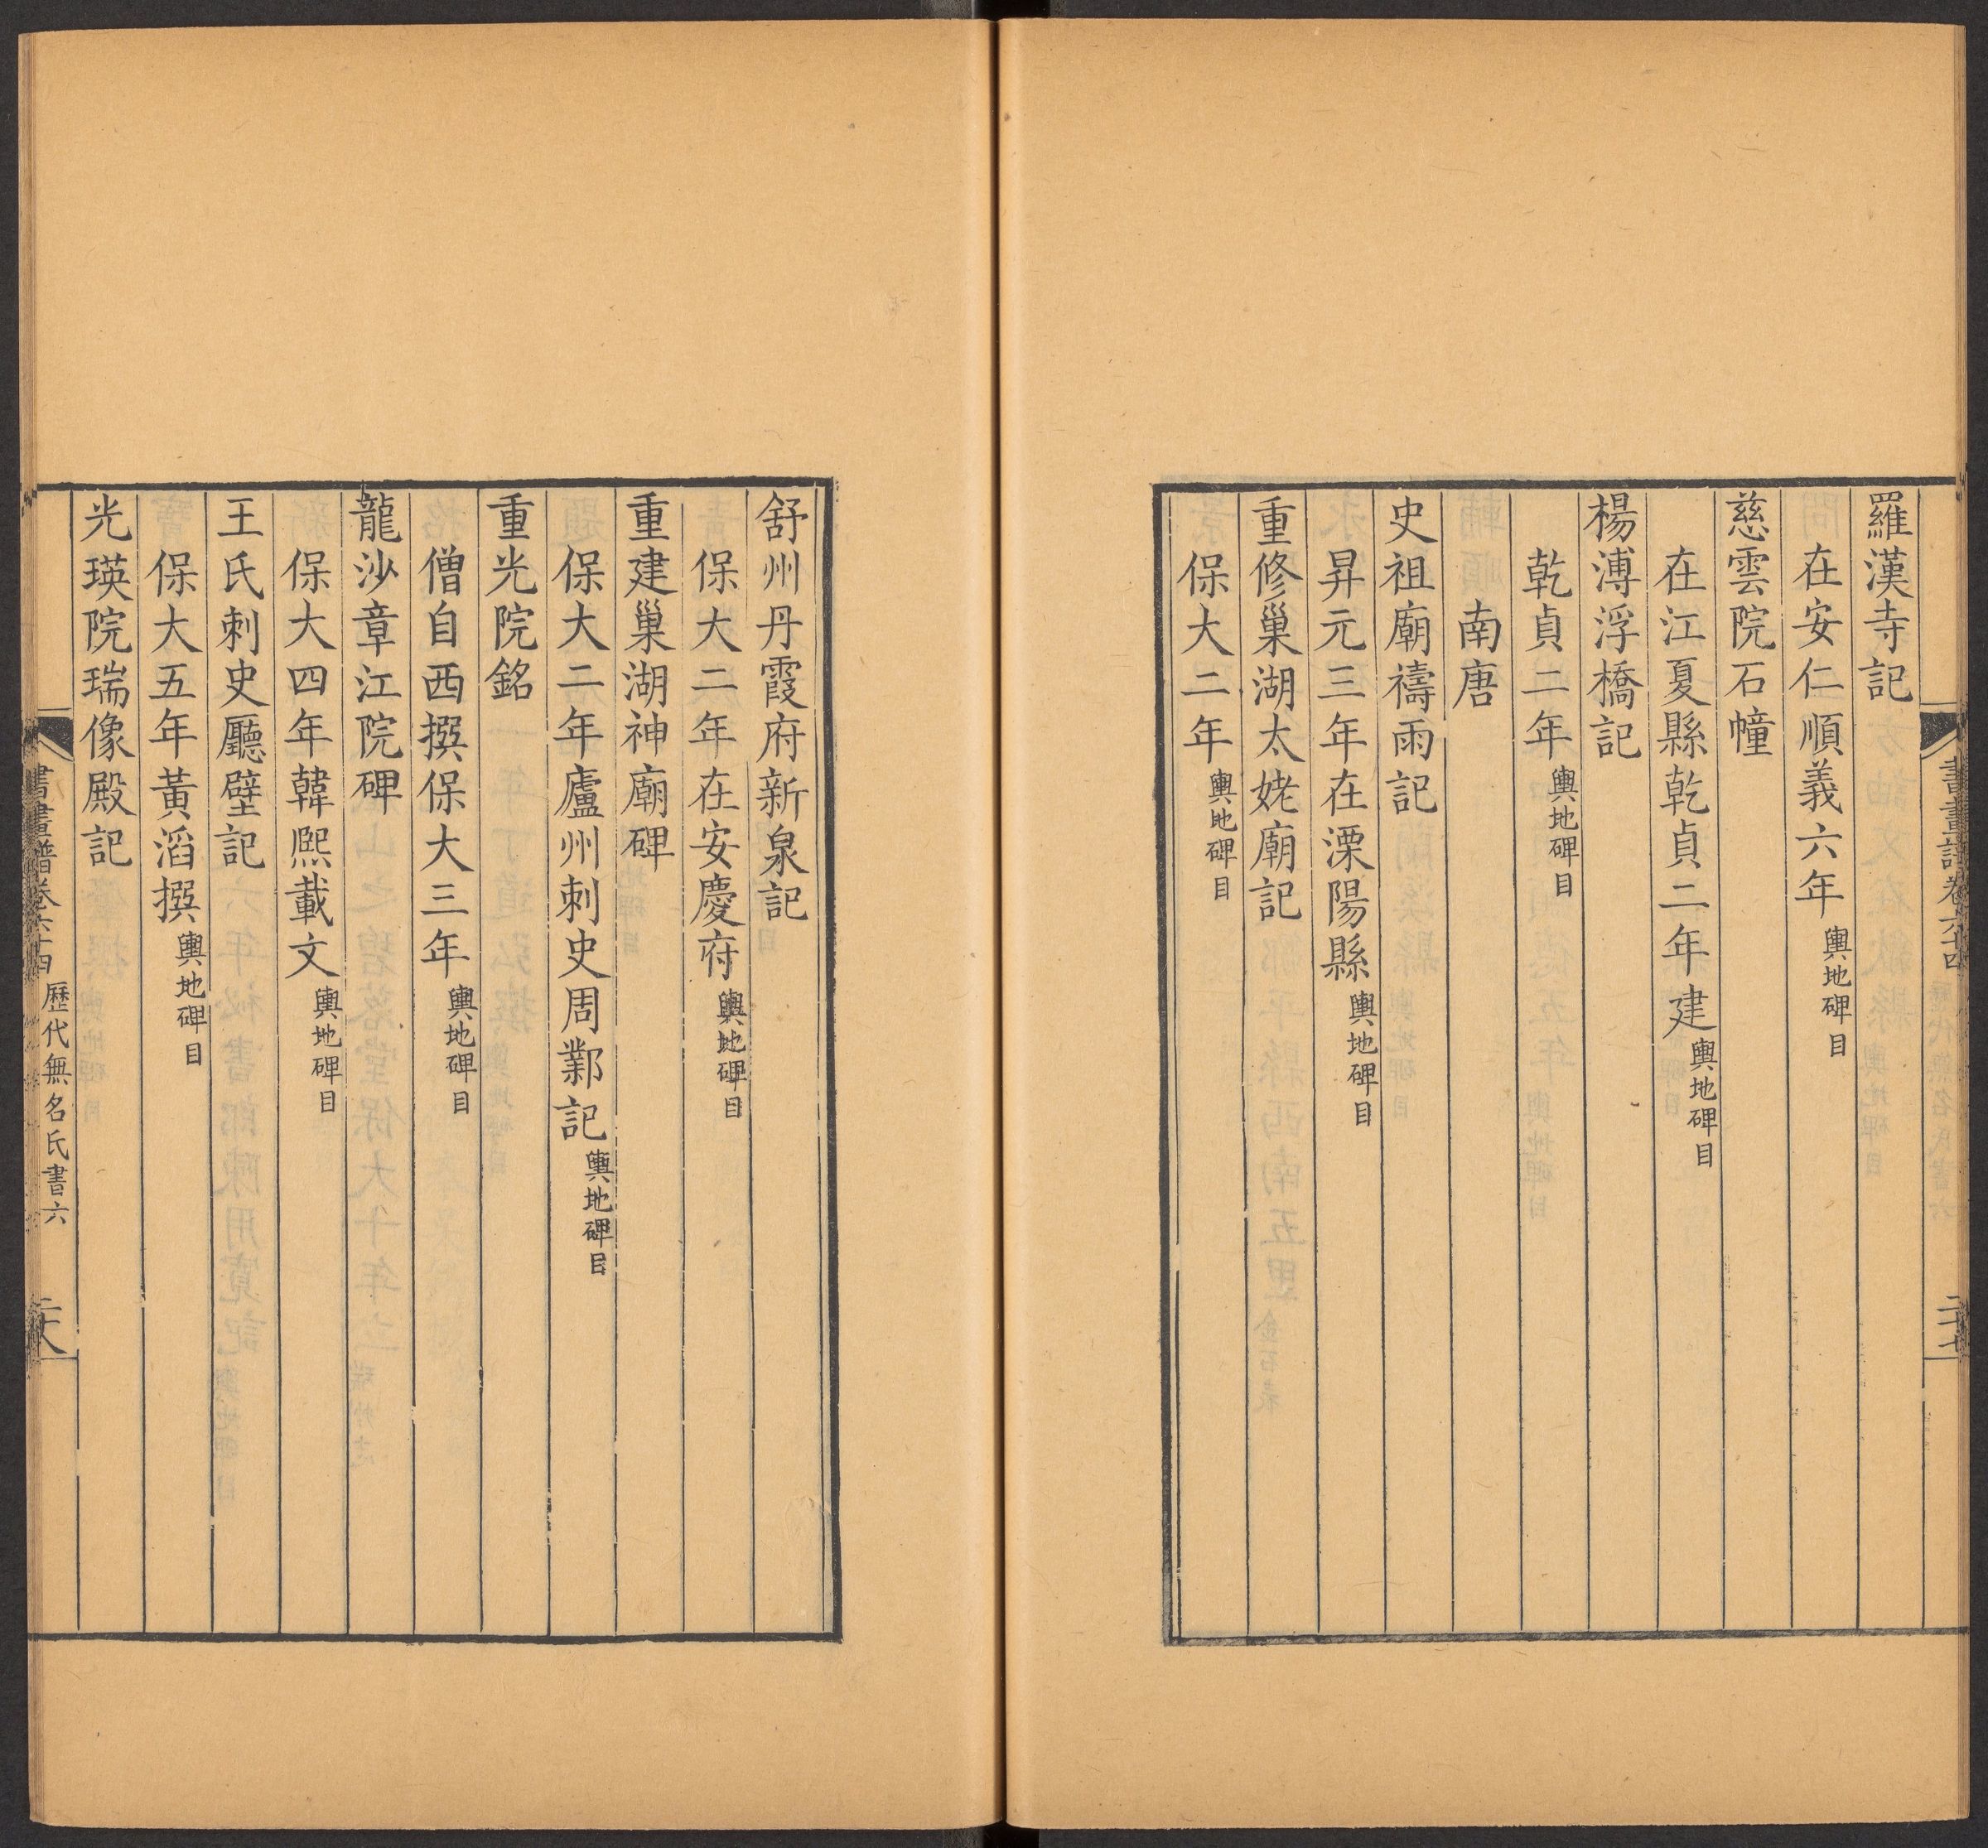 書畫譜卷六十四
二十七
羅漢寺記
在安仁順義六年輿地碑目
慈雲院石幢
在江夏縣乾貞二年建輿地碑目
楊溥浮橋記
乾貞二年輿地碑目
南唐
史祖廟禱雨記
昇元三年在溧陽縣輿地碑目
重修巢湖太姥廟記
保大二年輿地碑目
舒州丹霞府新泉記
保大二年在安慶府輿地碑目
重建巢湖神廟碑
保大二年廬州刺史周鄴記輿地碑目
重光院銘
僧自西撰保大三年輿地碑目
龍沙章江院碑
保大四年韓熙載文輿地碑目
王氏刺史廳壁記
保大五年黃滔撰輿地碑目
光瑛院瑞像殿記
書畫譜卷六十四 歷代無名氏書六
二十八